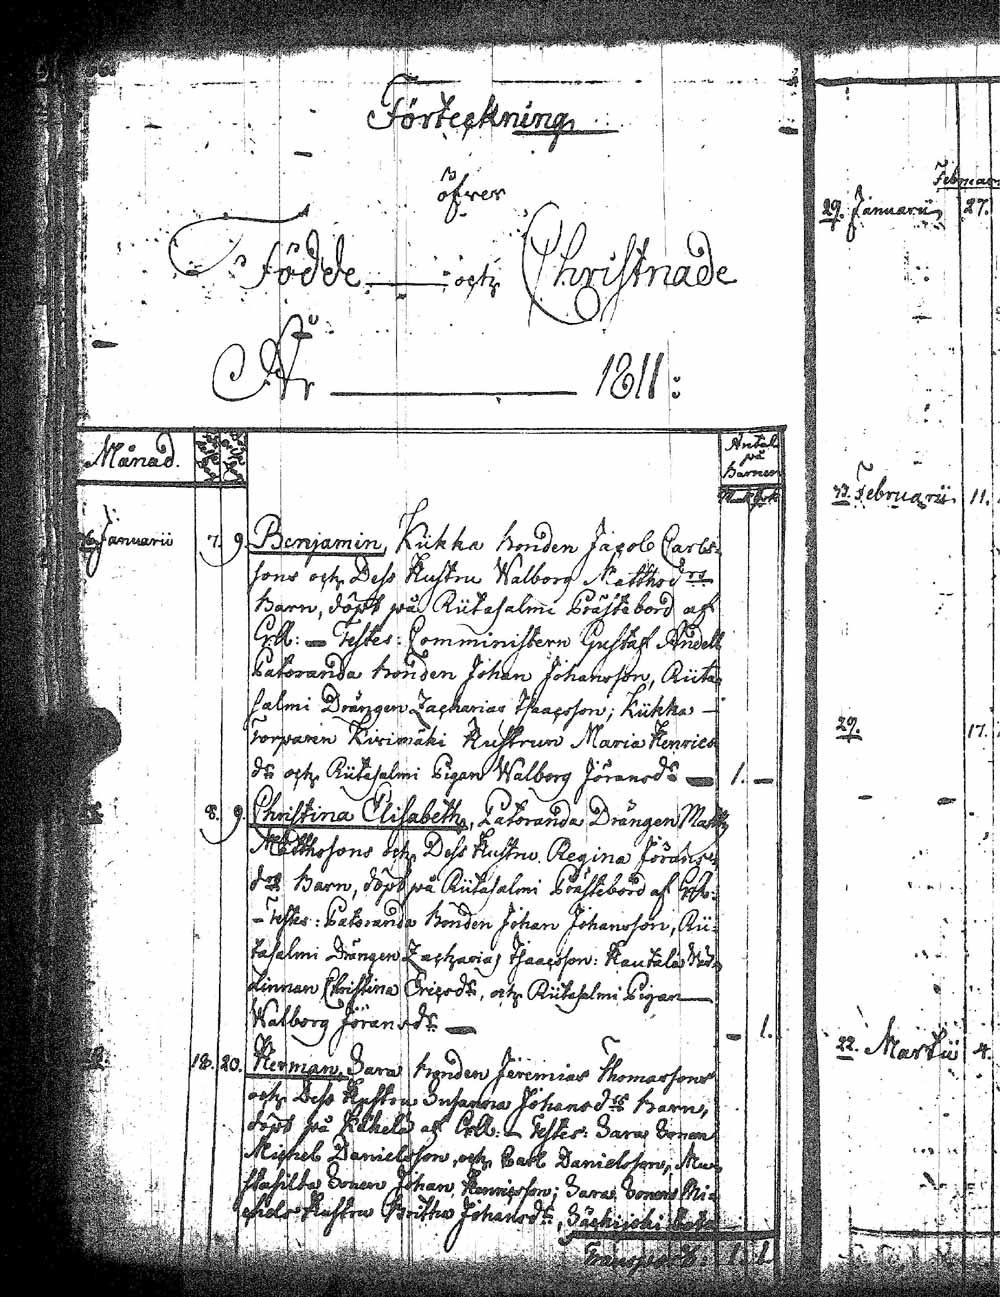 Förteckning
öfver
Födde och Christnade
År 1811:
Månad.
Antal
på
Barnen
Januarii 7. 9. Benjamin, Kükka bonden Jacob Carls-
sons och Dess Hustru Walborg Matthsdrs
Barn, döpt på Rütasalmi Böstebord af
Cpll: — Testes: Comministern Gustaf Andell
Patoranda bonden Johan Johansson, Rüta-
salmi Drängen Zacharias Isacsson; Kükka —
Torparen Kirimäki Hustrun Maria Henrics
dr och Rütasalmi Pigan Walborg Jöransdr — 1. —
8. 9. Christina Elisabeth, Patoranda Drängen Matts
Matthssons och Dess Hustru Regina Jörans-
drs Barn, döpt på Rütasalmi Böstebord af Cpl:
— Testes: Patoranda bonden Johan Johansson, Rü-
tasalmi Drängen Zacharias Isacsson: Kautala
linnan Christina Ericsdr, och Rütasalmi Pigan
Walborg Jöransdr — — 1.
18. 20. Herman, Sara bonden Jeremias Thomassons
och Dess Hustru Susanna Johansdrs Barn,
döpt på af Cpll: — Testes: Sara Sonen
Michel Danielsson, och Carl Danielsson, Mu-
stasilta Sonen Johan Henricsson; Sara Sonens Mi-
chels Hustru Britha Johansdr,
Transport: 1. 2
Februarii
29. Januarii 27.
13. Februarii 11.
29. 17.
22. Martii 4.